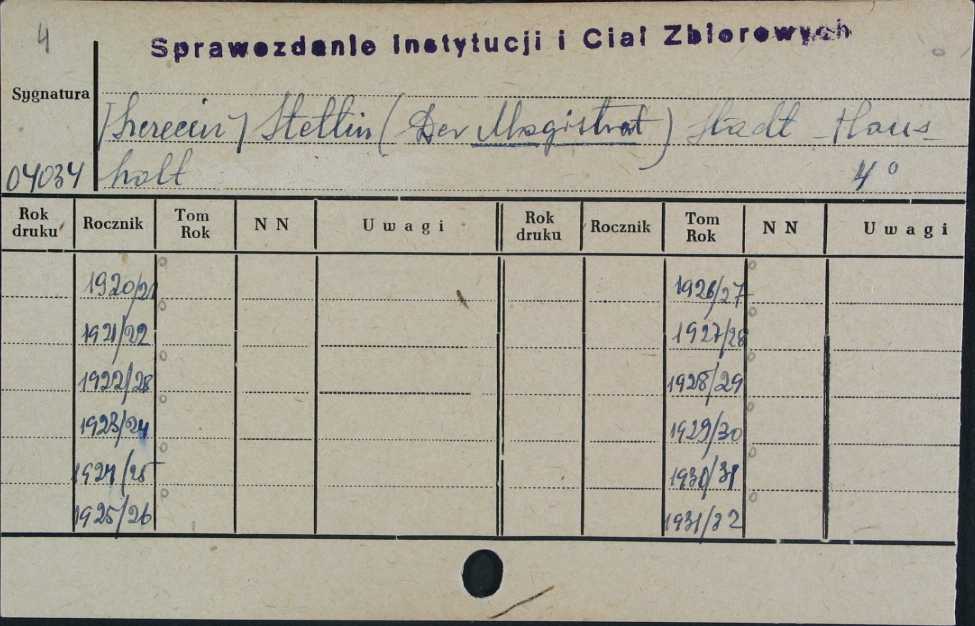 4
Sprawozdanie Instytucji i Ciał Zbiorowych
Sygnatura
[Szczecin] Stettin (Der Magistrat) Stadt-Haus-
04034 halt 4°
Rok druku Rocznik Tom Rok NN Uwagi Rok druku Rocznik Tom Rok NN Uwagi
1920/21 1926/27
1921/22 1927/28
1922/23 1928/29
1923/24 1929/30
1924/25 1930/31
1925/26 1931/32